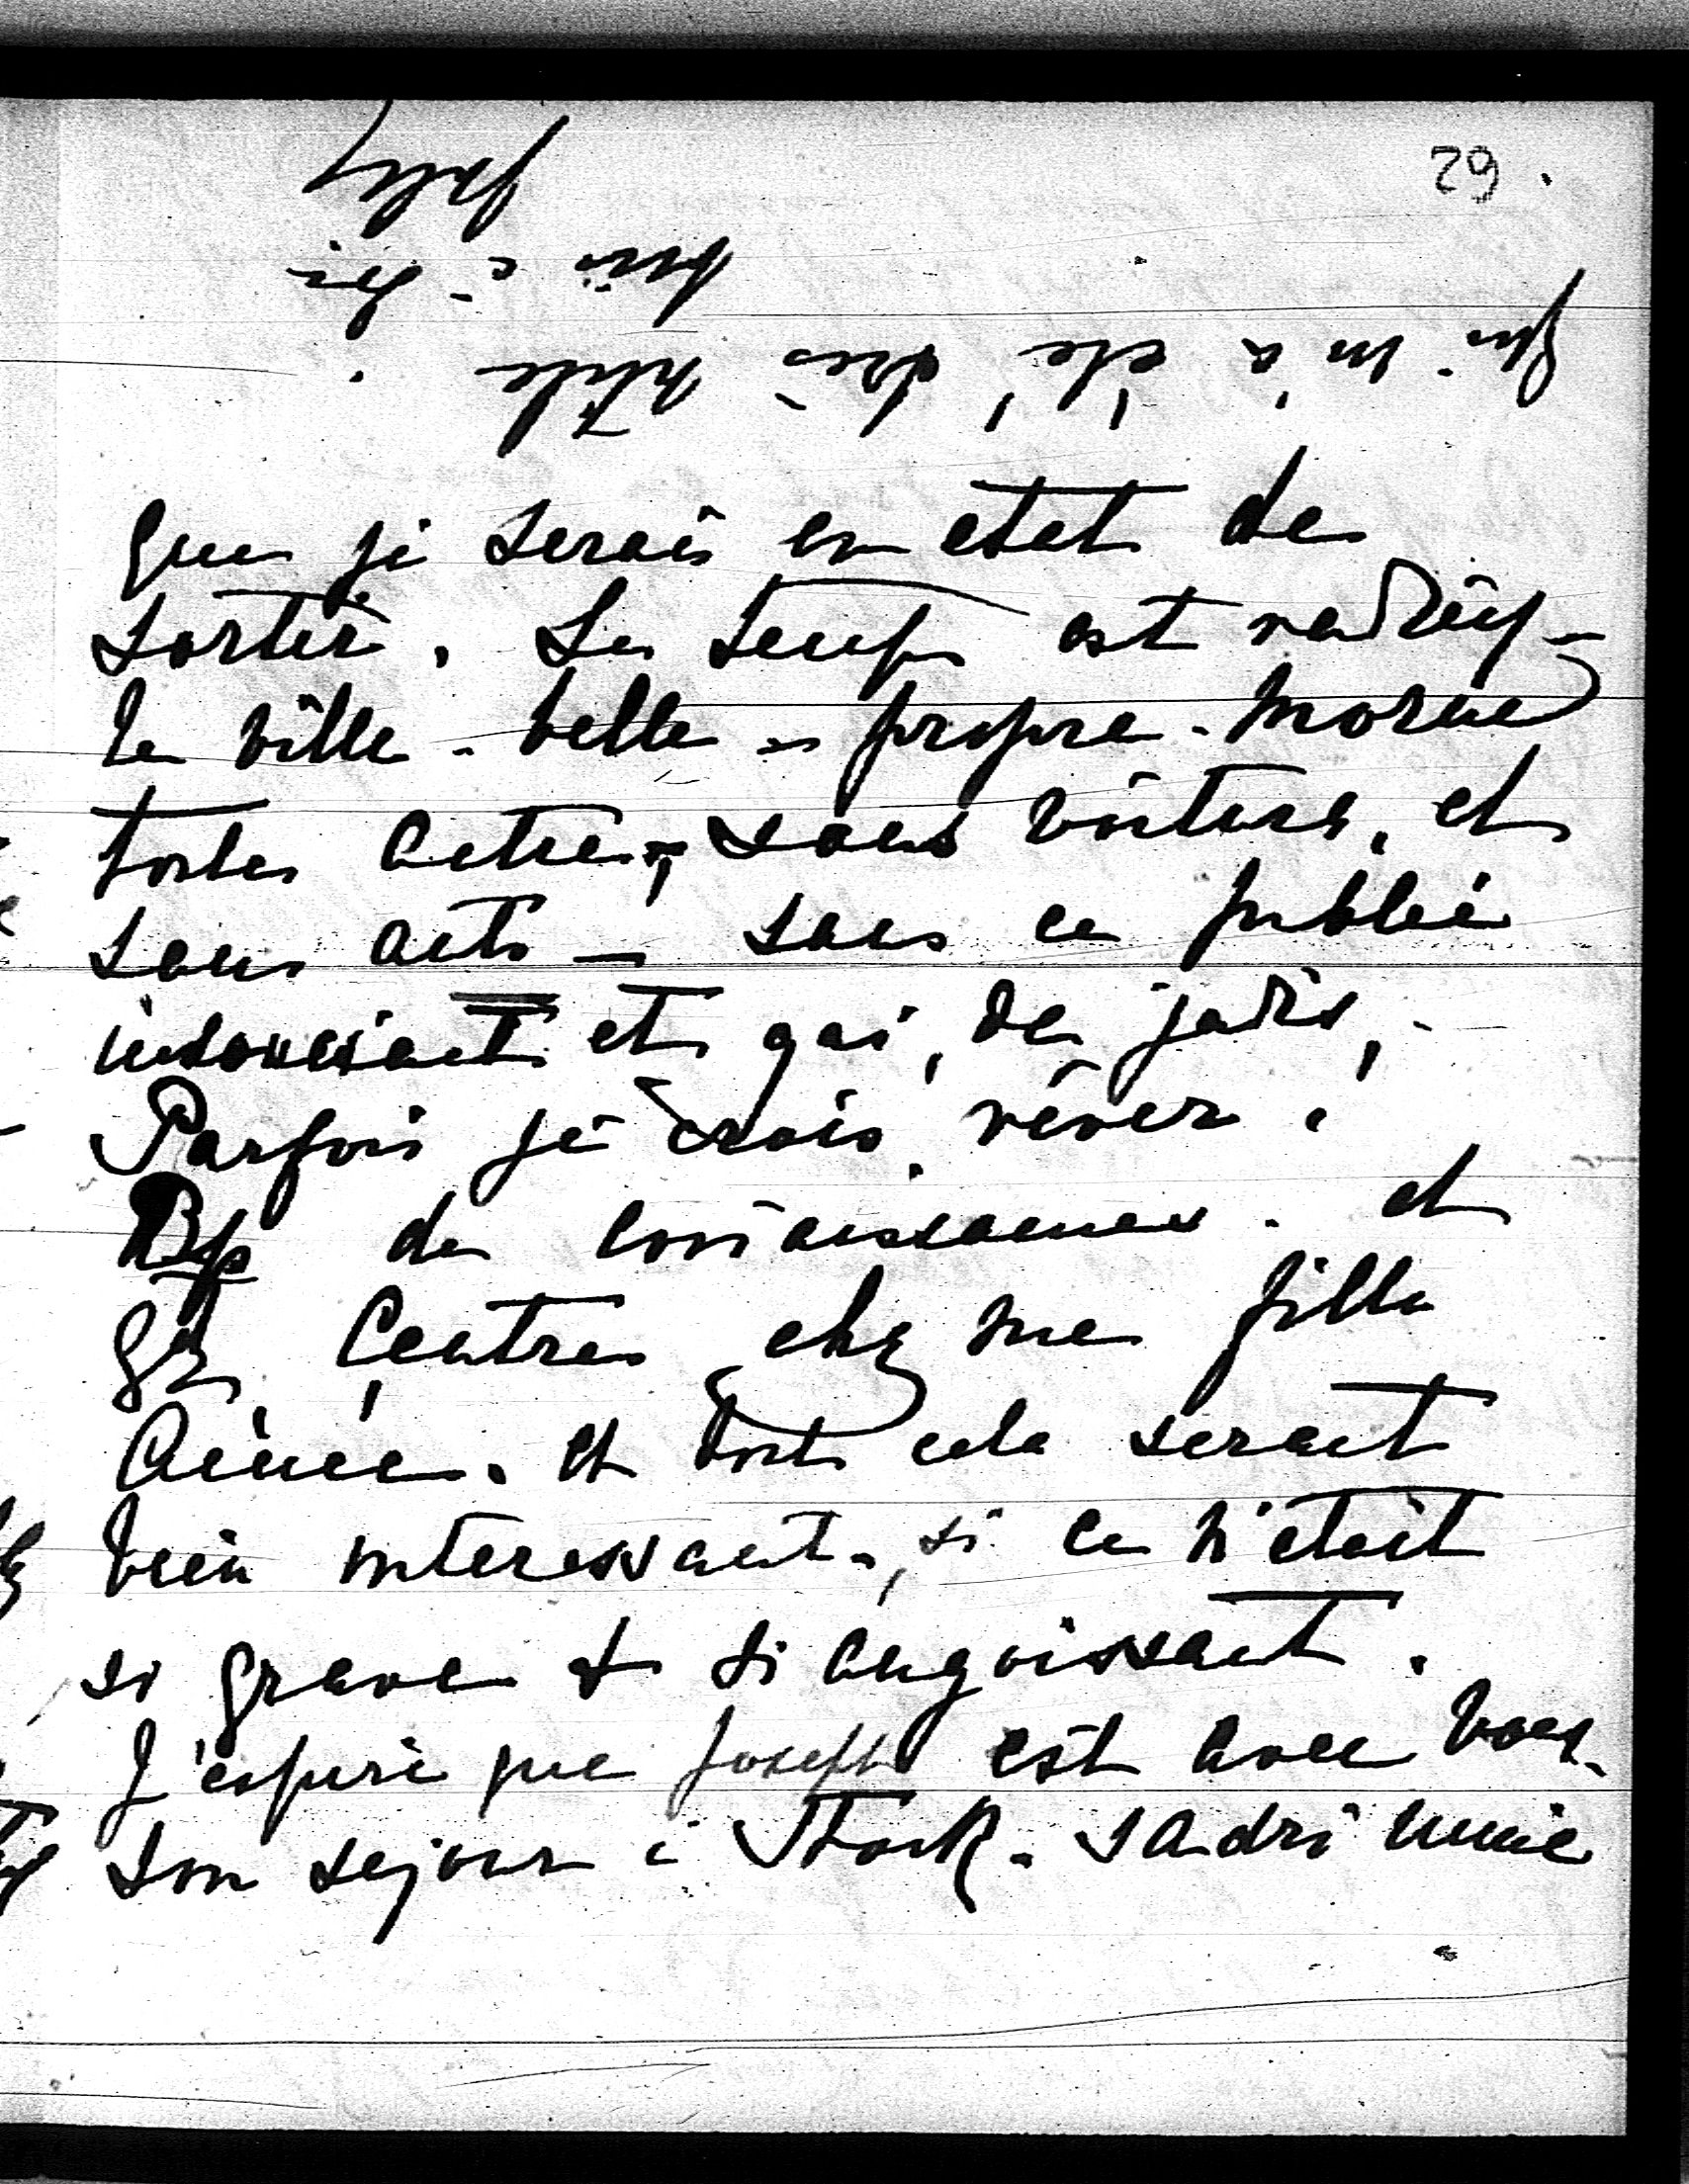 29.
qui m'a été très utile.
bien à toi
que je serais en etat de
sortir. Le temps est radieux -
la ville - belle - propre - morne
toute autre, sans voitures, et
sans auto - sans ce public
insouciant et gai, de jadis,
Parfois je crois rêver !
Bcp de connaissances. et
gd centre chez ma fille
Ainée. et tout cela serait
bien interessant, si ce n'etait
si grave & si angoissant.
J'espere que Joseph est avec vous.
Son sejour à Stock.